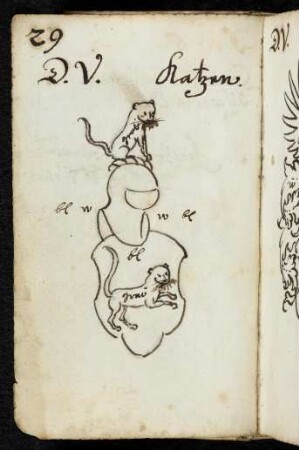 29
D. V. Katzen.
bl w w bl
bl
grau